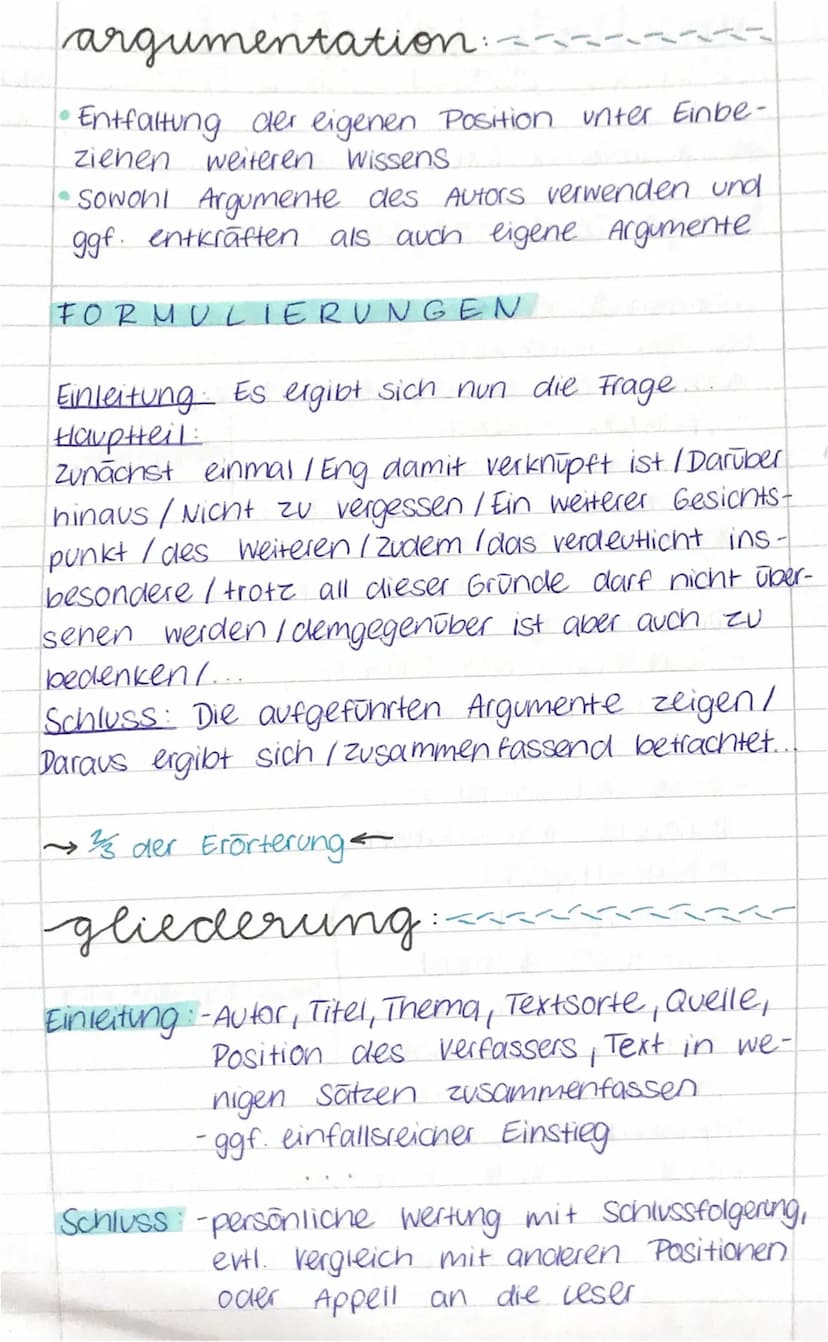 argumentation:
• Entfaltung der eigenen Position unter Einbe-
ziehen weiteren Wissens
• Sowohl Argumente des Autors verwenden und
ggf. entkräften als auch eigene Argumente
FORMULIERUNGEN
Einleitung: Es ergibt sich nun die Frage ...
Hauptteil:
Zunächst einmal / Eng damit verknüpft ist / Darüber
hinaus / Nicht zu vergessen / Ein weiterer Gesichts-
punkt / des Weiteren / zudem / das verdeutlicht ins-
besondere / trotz all dieser Gründe darf nicht über-
sehen werden / demgegenüber ist aber auch zu
bedenken / ...
Schluss: Die aufgeführten Argumente zeigen /
Daraus ergibt sich / zusammenfassend betrachtet...
→ 2/3 der Erörterung ←
gliederung:
Einleitung: - Autor, Titel, Thema, Textsorte, Quelle,
Position des Verfassers, Text in we-
nigen Sätzen zusammenfassen
- ggf. einfallsreicher Einstieg
...
Schluss: - persönliche Wertung mit Schlussfolgerung,
evtl. Vergleich mit anderen Positionen
oder Appell an die Leser